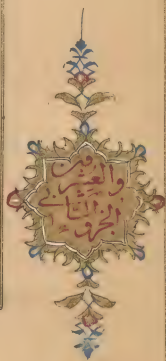 الجزؤ الثاني
والعشرون